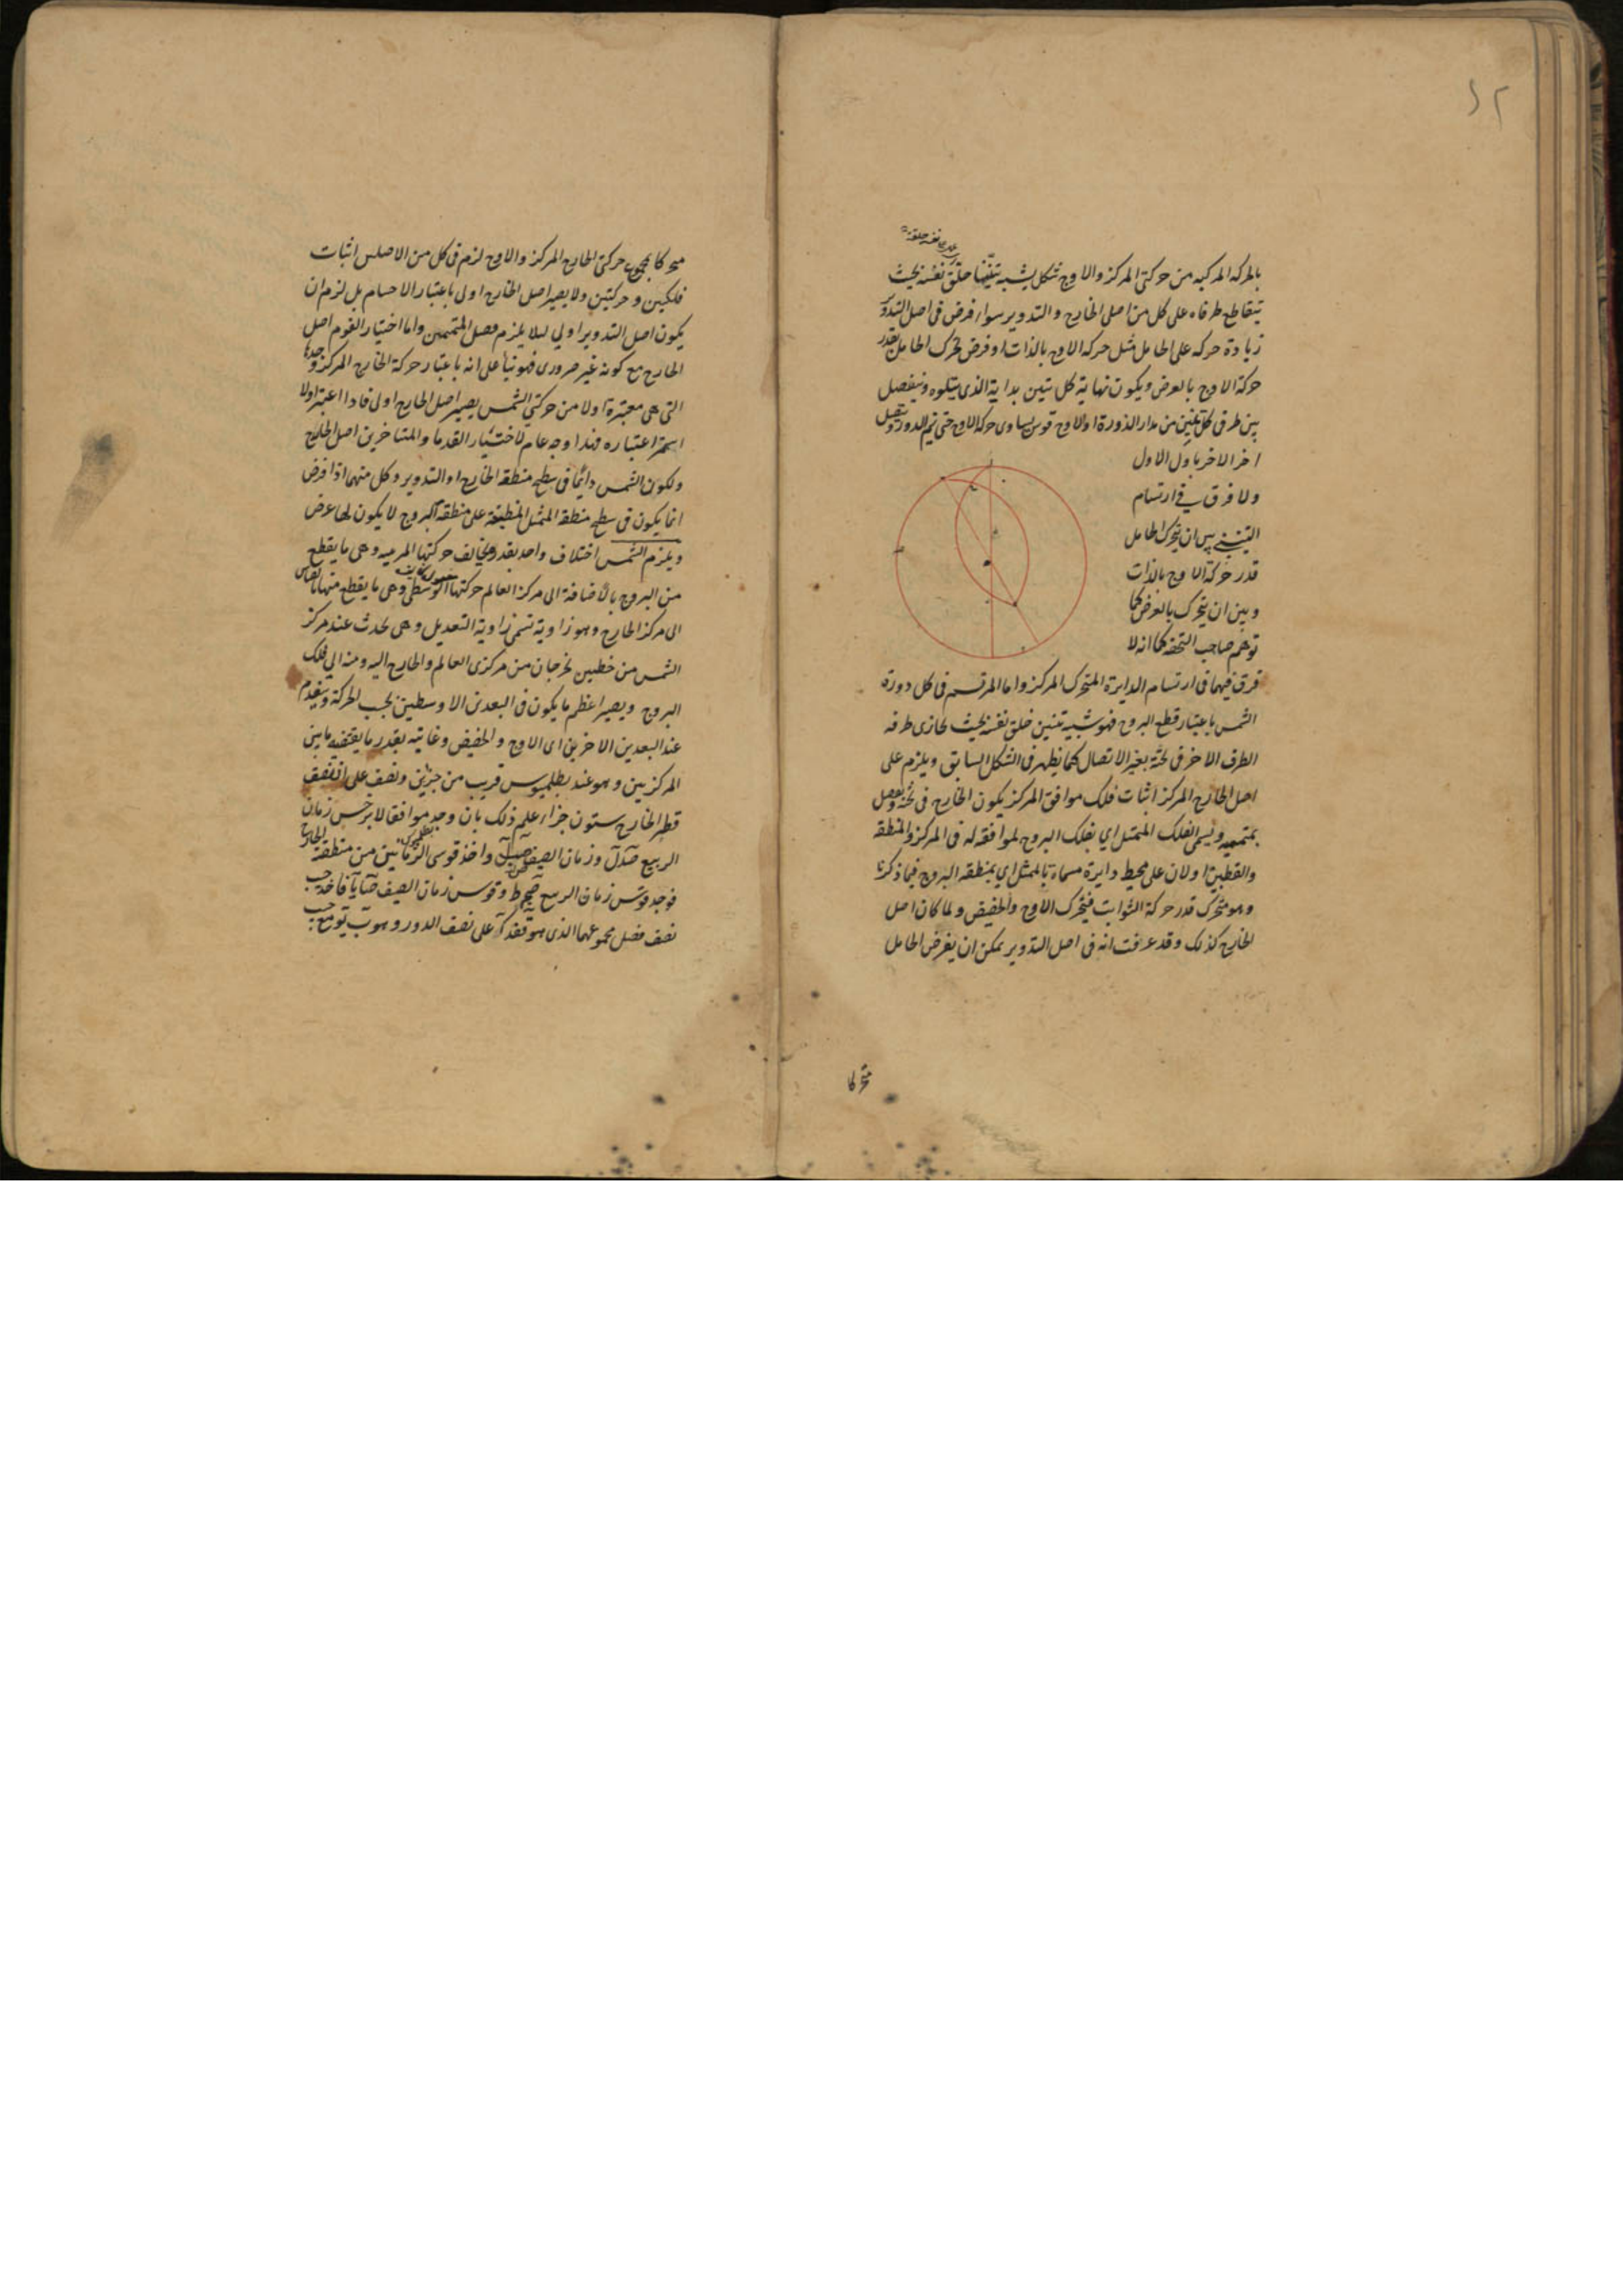 ٤٢
بالحركة المركبه من حركتى المركز والاوج شكل يشبه تنّينا حلّق نفسه بحيث
يتقاطع طرفاه على كل من اصلى الخارج والتدوير سواء فرض فى اصل التدوير
زيادة حركه على الحامل مثل حركه الاوج بالذات او فرض تحرك الحامل بقدر
حركة الاوج بالعرض ويكون نهاية كل تنين بداية الذى يتلوه وينفصل
بين طرفى كل تنين من مدار الذروة او الاوج قوس يساوى حركة الاوج حتى يتم الدور ويتصل
اخر الاخر باول الاول
ولا فرق فى ارتسام
التنين بين ان يتحرك الحامل
قدر حركة الاوج بالذات
وبين ان يتحرك بالعرض كما
توهم صاحب التحفه كما انه لا
فرق فيهما فى ارتسام الدايرة المتحرك المركز واما المرتسم فى كل دورة
الشمس باعتبار قطع البروج فهو شبيه تنين حلق نفسه بحيث يحاذى طرفه
الطرف الاخر فى ثخنه بغير الاتصال كما يظهر فى الشكل السابق ويلزم على
اصل الخارج المركز اثبات فلك موافق المركز يكون الخارج فى ثخنه ويفصل
بمتممه ويسمى الفلك الممثل اي بفلك البروج لموافقه له فى المركز والمنطقه
والقطبين اولان على محيط دايرة مسماة بالممثل اي بمنطقه البروج فيما ذكرنا
وهو متحرك قدر حركة الثوابت فيتحرك الاوج والحضيض ولما كان اصل
الخارج كذلك وقد عرفت انه فى اصل التدوير يمكن ان يفرض الحامل
متحركا
متحركا بمجموع حركتى الخارج المركز والاوج لزم فى كل من الاصلين اثبات
فلكين وحركتين ولا يصير اصل الخارج اولى باعتبار الاجسام بل لزم ان
يكون اصل التدوير اولى لئلا يلزم فصل المتممين واما اختيار القوم اصل
الخارج مع كونه غير ضرورى فهو بناء على انه باعتبار حركة الخارج المركز وحدها
التى هى معتبرة اولا من حركتى الشمس يصير اصل الخارج اولى فاذا اعتبر اولا
استمر اعتباره فهذا وجه عام لاختيار القدما والمتاخرين اصل الخارج
ولكون الشمس دائما فى سطح منطقة الخارج او التدوير وكل منهما اذا فرض
انما يكون فى سطح منطقه الممثل المنطبقة على منطقه البروج لا يكون لها عرض
ويلزم الشمس اختلاف واحد بقدر تخالف حركتها المرئيه وهى ما يقطع
من البروج بالاضافة الى مركز العالم حركتها الوسطى وهى ما يقطع منها بالقياس
الى مركز الخارج وهو زاوية تسمى زاوية التعديل وهى تحدث عند مركز
الشمس من خطين يخرجان من مركزى العالم والخارج اليه ومنه الى فلك
البروج ويصير اعظم ما يكون فى البعدين الاوسطين بحسب الحركة وينعدم
عند البعدين الاخرين اى الاوج والحضيض وغايته بقدر ما يقتضيه ما بين
المركزين وهو عند بطلميوس قريب من جزئين ونصف على ان نصف
قطر الخارج ستون جزءا علم ذلك بان وجد موافقا لابرخس زمان
الربيع صد ل وزمان الصيف صب ل واخذ قوسى الزمانين من منطقه الخارج
فوجد قوس زمان الربيع صج ط وقوس زمان الصيف صا يا فاخذ جيب
نصف فضل مجموعهما الذى هو قفد ك على نصف الدور وهو ب ى مع جيب